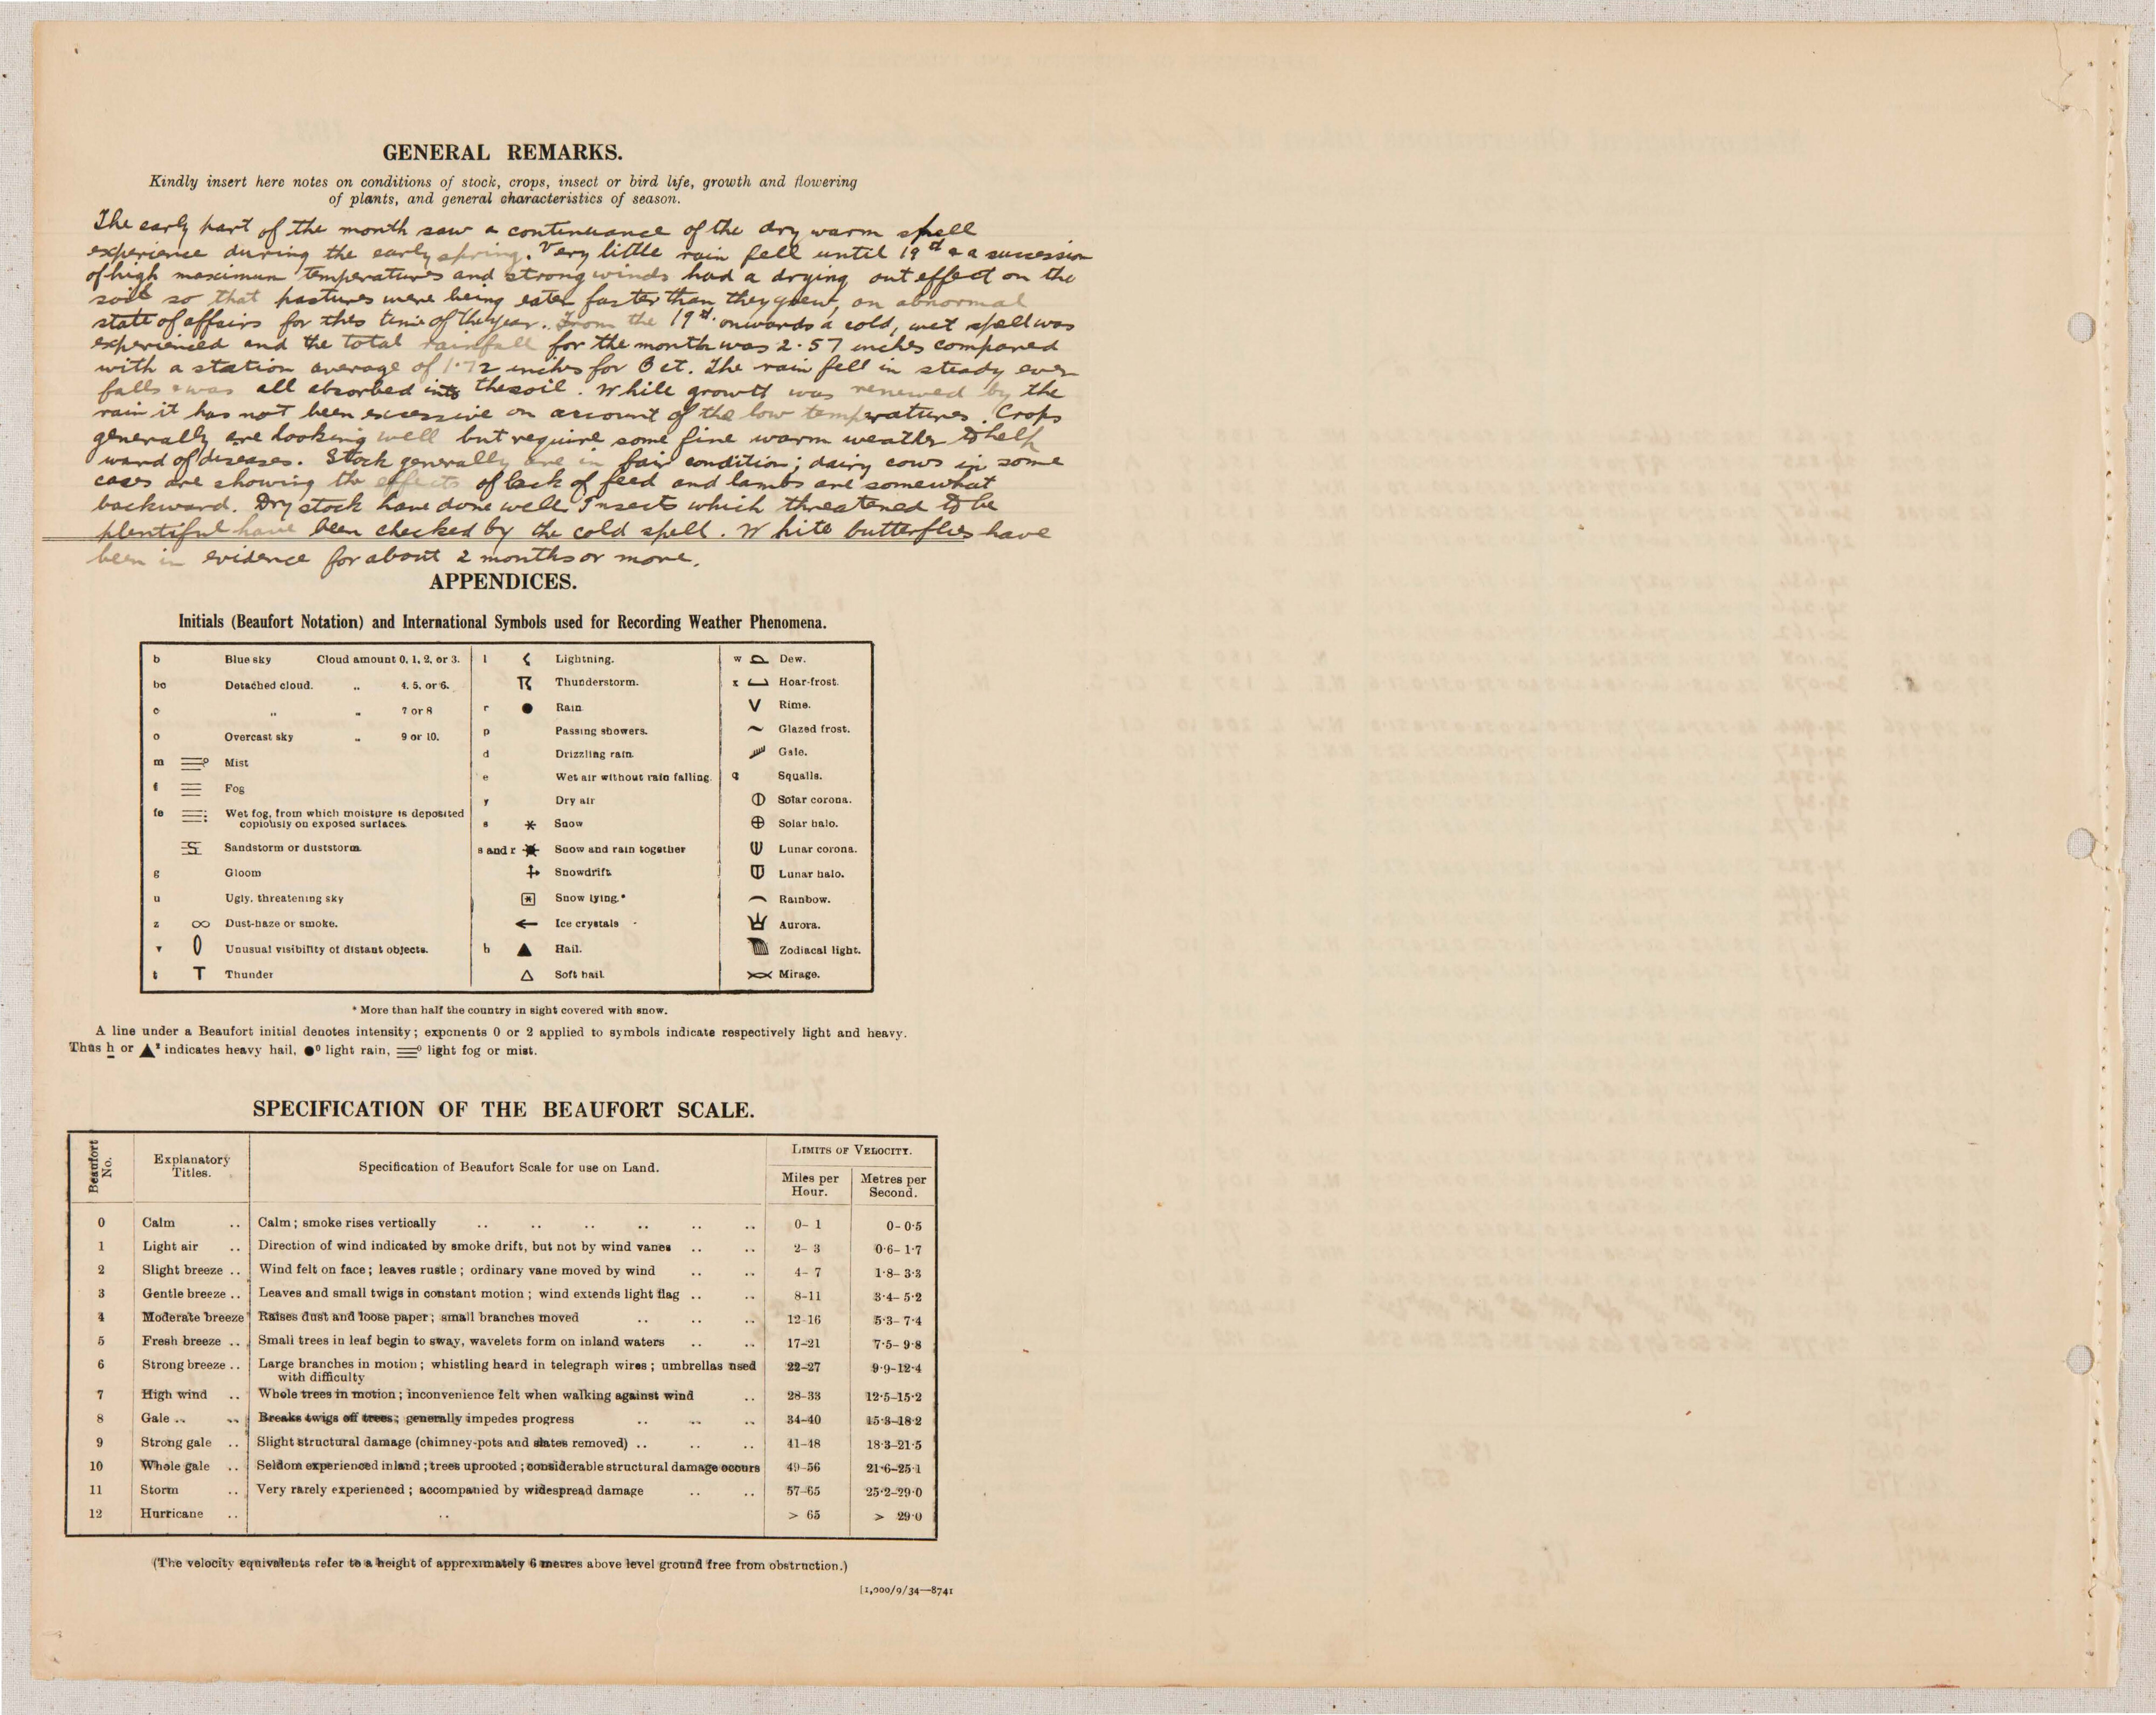 GENERAL REMARKS.
Kindly insert here notes on conditions of stock, crops, insect or bird life, growth and flowering
of plants, and general characteristics of season.
The early part of the month saw a continuance of the dry warm spell
experience during the early spring. Very little rain fell until 19th & a succession
of high maximum temperatures and strong winds had a drying out effect on the
soil so that pastures were being eaten faster than they grew, an abnormal
state of affairs for this time of the year. From the 19th onwards a cold, wet spell was
experienced and the total rainfall for the month was 2.57 inches compared
with a station average of 1.72 inches for Oct. The rain fell in steady even
falls & was all absorbed into the soil. While growth was renewed by the
rain it has not been excessive on account of the low temperatures. Crops
generally are looking well but require some fine warm weather to help
ward of diseases. Stock generally are in fair condition; dairy cows in some
cases are showing the effects of lack of feed and lambs are somewhat
backward. Dry stock have done well. Insects which threatened to be
plentiful have been checked by the cold spell. White butterflies have
been in evidence for about 2 months or more.
APPENDICES.
Initials (Beaufort Notation) and International Symbols used for Recording Weather Phenomena.
b Blue sky Cloud amount 0, 1, 2, or 3. l Lightning. w Dew.
bc Detached cloud. „ 4, 5, or 6. Thunderstorm. x Hoar-frost.
c „ „ 7 or 8 r ● Rain V Rime.
o Overcast sky „ 9 or 10. p Passing showers. Glazed frost.
m Mist d Drizzling rain. Gale.
f Fog e Wet air without rain falling. q Squalls.
y Dry air Solar corona.
fe Wet fog, from which moisture is deposited
copiously on exposed surfaces. s Snow Solar halo.
Sandstorm or duststorm. s and r Snow and rain together Lunar corona.
g Gloom Snowdrift. Lunar halo.
u Ugly, threatening sky Snow lying.* Rainbow.
z ∞ Dust-haze or smoke. ← Ice crystals Aurora.
v Unusual visibility of distant objects. h ▲ Hail. Zodiacal light.
t T Thunder △ Soft hail. Mirage.
* More than half the country in sight covered with snow.
A line under a Beaufort initial denotes intensity; exponents 0 or 2 applied to symbols indicate respectively light and heavy.
Thus h or ▲² indicates heavy hail, ●⁰ light rain, ≡⁰ light fog or mist.
SPECIFICATION OF THE BEAUFORT SCALE.
Beaufort No. Explanatory Titles. Specification of Beaufort Scale for use on Land. LIMITS OF VELOCITY.
Miles per Hour. Metres per Second.
0 Calm .. Calm; smoke rises vertically .. .. .. .. .. .. 0– 1 0–0·5
1 Light air .. Direction of wind indicated by smoke drift, but not by wind vanes .. .. 2– 3 0·6–1·7
2 Slight breeze .. Wind felt on face; leaves rustle; ordinary vane moved by wind .. .. 4– 7 1·8–3·3
3 Gentle breeze .. Leaves and small twigs in constant motion; wind extends light flag .. .. 8–11 3·4–5·2
4 Moderate breeze Raises dust and loose paper; small branches moved .. .. .. 12–16 5·3–7·4
5 Fresh breeze .. Small trees in leaf begin to sway, wavelets form on inland waters .. .. 17–21 7·5–9·8
6 Strong breeze .. Large branches in motion; whistling heard in telegraph wires; umbrellas used 22–27 9·9–12·4
with difficulty
7 High wind .. Whole trees in motion; inconvenience felt when walking against wind .. 28–33 12·5–15·2
8 Gale .. .. Breaks twigs off trees; generally impedes progress .. .. .. 34–40 15·3–18·2
9 Strong gale .. Slight structural damage (chimney-pots and slates removed) .. .. .. 41–48 18·3–21·5
10 Whole gale .. Seldom experienced inland; trees uprooted; considerable structural damage occurs 49–56 21·6–25·1
11 Storm .. Very rarely experienced; accompanied by widespread damage .. .. 57–65 25·2–29·0
12 Hurricane .. .. > 65 > 29·0
(The velocity equivalents refer to a height of approximately 6 metres above level ground free from obstruction.)
[1,000/9/34—8741